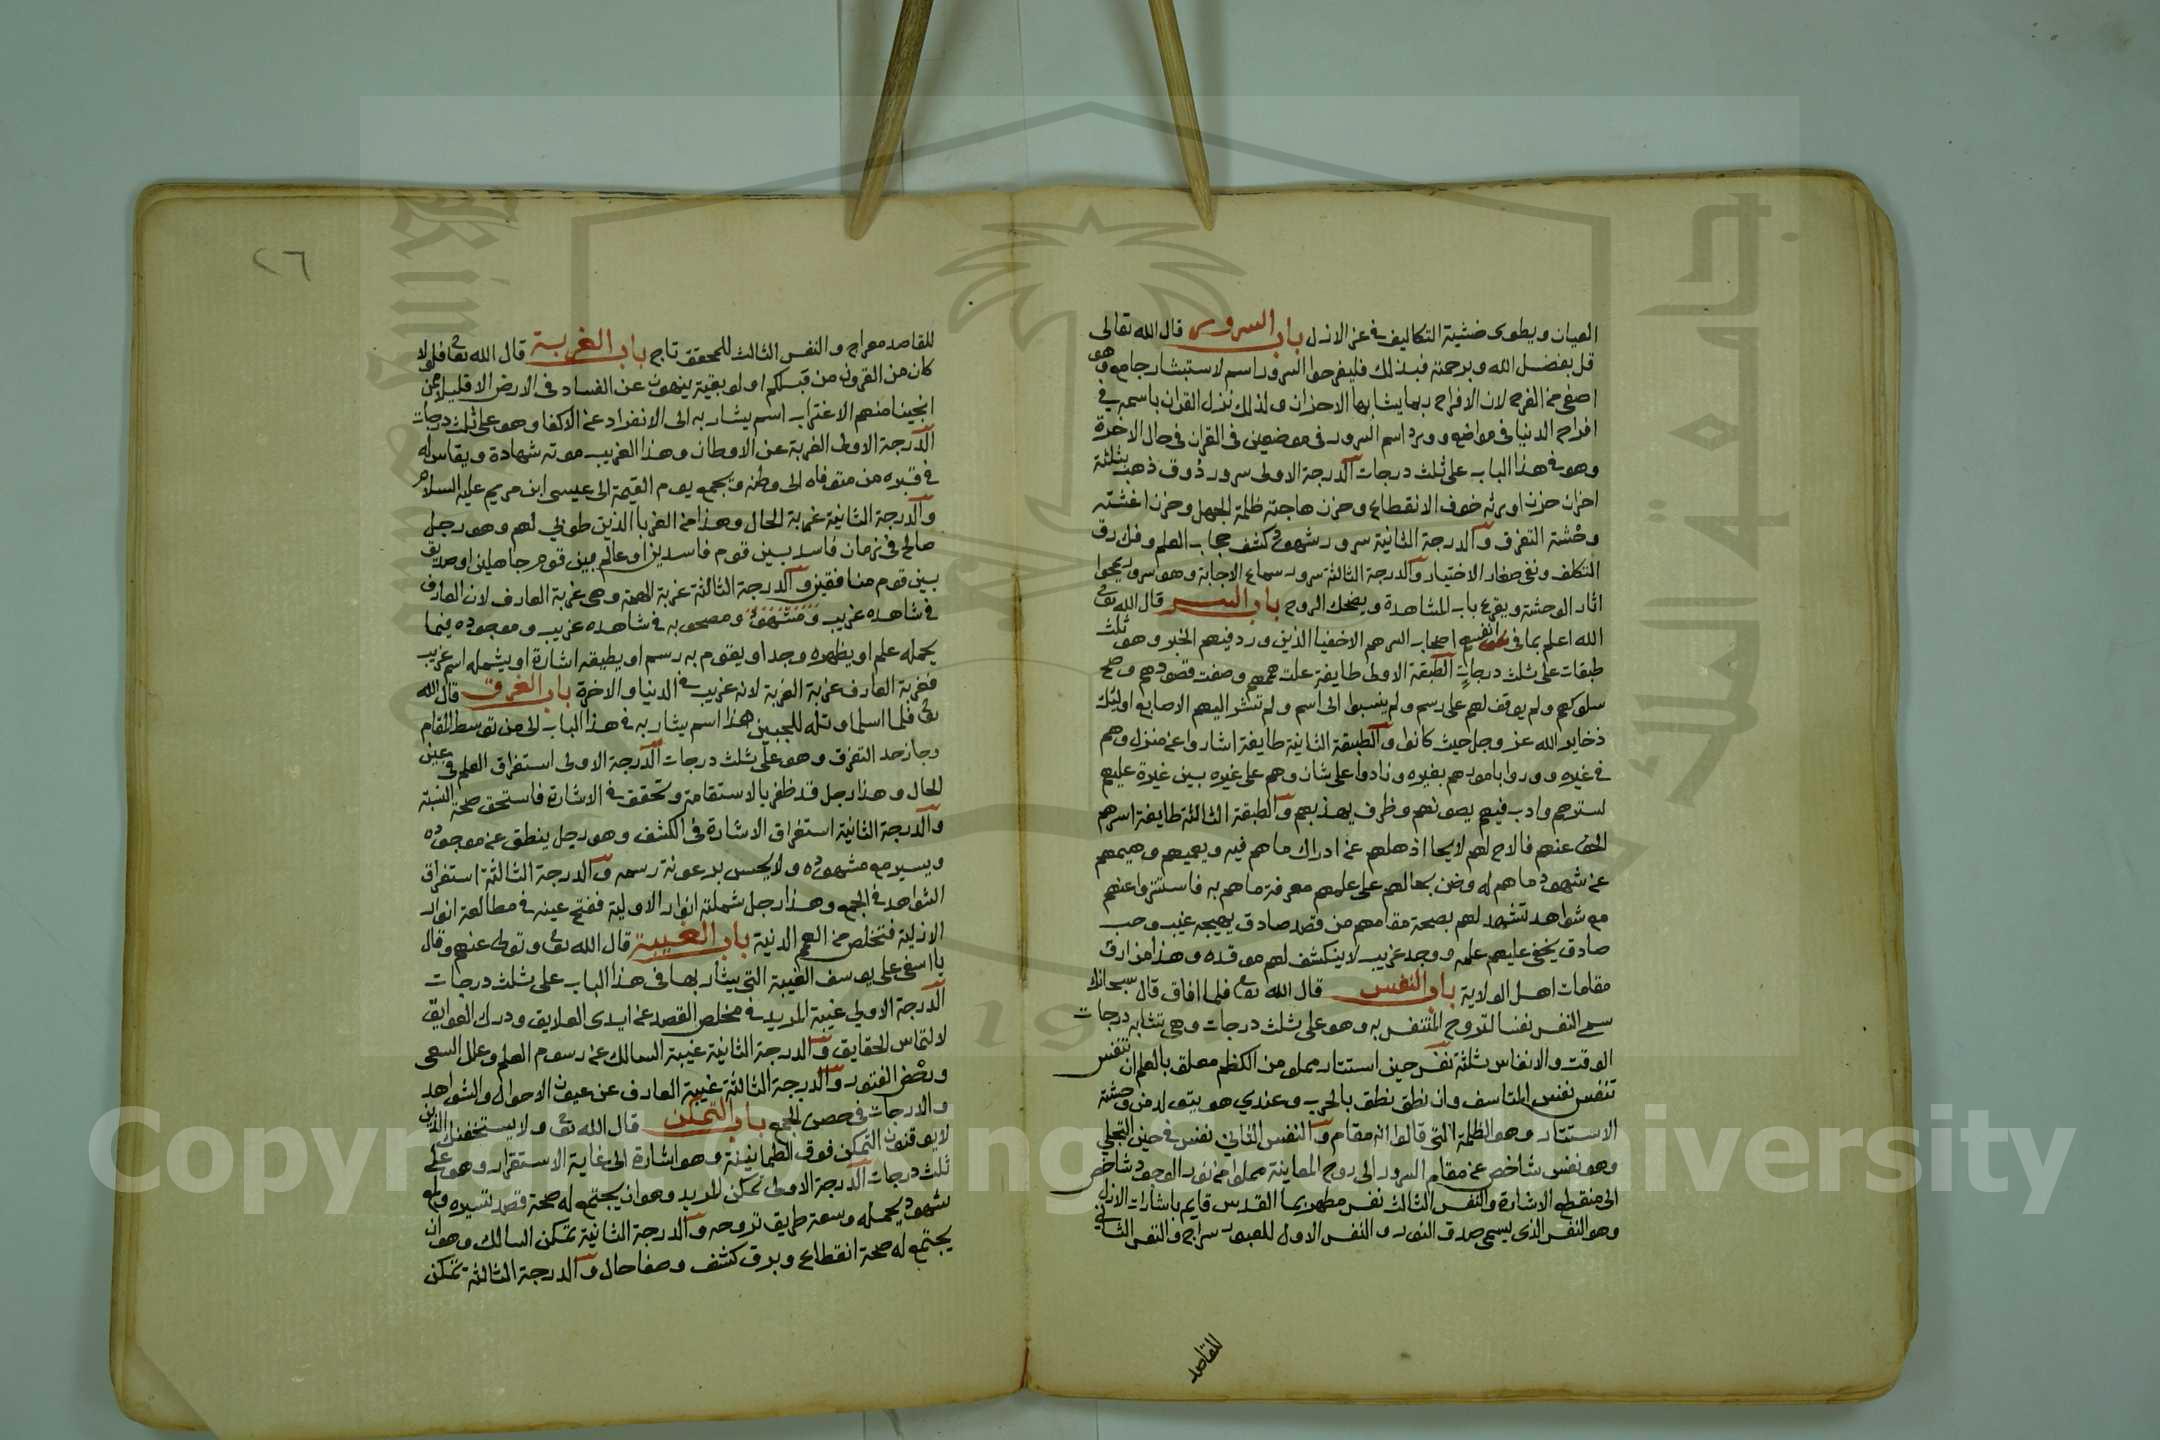 العيان ويطوى خشية التكاليف في عز الازل باب السرور قال الله تعالى
قل بفضل الله وبرحمته فبذلك فليفرحوا السرور اسم لاستبشار جامع وهو
اصفى من الفرح لان الافراح ربما يشابها الاحزان ولذلك نزل القران باسمه في
افراح الدنيا في مواضع وورد اسم السرور في موضعين في القران في حال الاخرة
وهو في هذا الباب على ثلث درجات الدرجة الاولى سرور ذوق ذهب بثلثة
احزان حزن اورثه خوف الانقطاع وحزن هاجته ظلمة الجهل وحزن اغشته
وحشة التفرق والدرجة الثانية سرور شهود كشف حجاب العلم وفك رق
التكلف ونفى صغار الاختيار والدرجة الثالثة سرور سماع الاجابة وهو سرور يمحوا
اثار الوحشة ويقرع باب المشاهدة ويضحك الروح باب السر قال الله تعالى
الله اعلم بما في انفسهم اصحاب السر هم الاخفيا الذين ورد فيهم الخبر وهو ثلث
طبقات على ثلث درجات الطبقة الاولى طايفة علت هممهم وصفت قصودهم وصح
سلوكهم ولم يوقف لهم على رسم ولم ينسبوا الى اسم ولم تشر اليهم الاصابع اولئك
ذخاير الله عز وجل حيث كانوا والطبقة الثانية طايفة اشاروا عن منزل وهم
في غيره ووروا بامور هم بغيره ونادوا على شان وهم على غيره بين غيرة عليهم
تسترهم وادب فيهم يصونهم وظرف يهذبهم والطبقة الثالثة طايفة اسرهم
الحق عنهم فالاح لهم لايحا اذهلهم عن ادراك ما هم فيه ويعميهم وهيمهم
عن شهود ما هم له وضن بحالهم على علمهم معرفة ما هم به فاستتروا عنهم
مع شواهد تشهد لهم بصحة مقامهم من قصد صادق يهيجه غيب وحب
صادق يخفى عليهم علمه ووجد غريب لا ينكشف لهم موقده وهذا من ارق
مقامات اهل الولاية باب النفس قال الله تعالى فلما افاق قال سبحانك
سمى النفس نفسا لتروح المتنفس به وهو على ثلث درجات وهي تشابه درجات
الوقت والانفاس ثلثة نفس حين استتار مملو من الكظم معلق بالعلم ان تنفس
تنفس نفس المتاسف وان نطق نطق بالحرب وعندي هو يتولد من وحشة
الاستتار وهو الظلمة التي قالوا انه مقام والنفس الثاني نفس في حين التجلي
وهو نفس شاخص عن مقام السرور الى روح المعاينة مملوا من نور الوجود شاخص
الى منقطع الاشارة والنفس الثالث نفس مطهر بما القدس قايم باشارات الازل
وهو النفس الذي يسمى صدق النور والنفس الاول للعبور سراج والنفس الثاني
للقاصد
٢٦
للقاصد معراج والنفس الثالث للمحقق تاج باب الغربة قال الله تعالى فلولا
كان من القرون من قبلكم اولو بقية ينهون عن الفساد في الارض الا قليلا ممن
انجينا منهم الاغتراب اسم يشار به الى الانفراد عن الاكفا وهو على ثلث درجات
الدرجة الاولى الغربة عن الاوطان وهذا الغريب موته شهادة ويقاس له
في قبره من متوفاه الى وطنه ويجمع يوم القيمة الى عيسى ابن مريم عليه السلام
والدرجة الثانية غربة الحال وهذا من الغربا الذين طوبى لهم وهو رجل
صالح في زمان فاسد بين قوم فاسدين او عالم بين قوم جاهلين او صديق
بين قوم منافقين والدرجة الثالثة غربة الهمة وهي غربة العارف لان العارف
في شاهده غريب ومشهوده ومصحوبه في شاهده غريب وموجوده فيما
يحمله علم او يظهره وجد او يقوم به رسم او يطيقه اشارة او يشمله اسم غريب
فغربة العارف غربة الغربة لانه غريب في الدنيا والاخرة باب الغرق قال الله
تعالى فلما اسلما وتله للجبين هذا اسم يشار به في هذا الباب الى من توسط المقام
وجاز حد التفرق وهو على ثلث درجات الدرجة الاولى استغراق العلم في عين
الحال وهذا رجل قد ظفر بالاستقامة وتحقق في الاشارة فاستحق صحة النسبة
والدرجة الثانية استغراق الاشارة في الكشف وهو رجل ينطق عن موجوده
ويسير مع مشهوده ولا يحس برعونة رسمه والدرجة الثالثة استغراق
الشواهد في الجمع وهذا رجل شملته انوار الاولية ففتح عينه في مطالعة انوار
الازلية فتخلص من الهمم الدنية باب الغيبة قال الله تعالى وتولى عنهم وقال
يا اسفى على يوسف الغيبة التي يشار بها في هذا الباب على ثلث درجات
الدرجة الاولى غيبة المريد في مخلص القصد عن ايدى العلايق ودرك العوايق
لالتماس الحقايق والدرجة الثانية غيبة السالك عن رسوم العلم وعلل السعى
ورخص الفتور والدرجة الثالثة غيبة العارف عن عيون الاحوال والشواهد
والدرجات في حصن الجمع باب التمكن قال الله تعالى ولا يستخفنك الذين
لا يوقنون التمكن فوق الطمانينة وهو اشارة الى غاية الاستقرار وهو على
ثلث درجات الدرجة الاولى تمكن المريد وهو ان يجتمع له صحة قصد تسيره ولمع
شهود يحمله وسعة طريق تروحه والدرجة الثانية تمكن السالك وهو ان
يجتمع له صحة انقطاع وبرق كشف وصفا حال والدرجة الثالثة تمكن
Copyright © King Saud University
جامعة الملك سعود